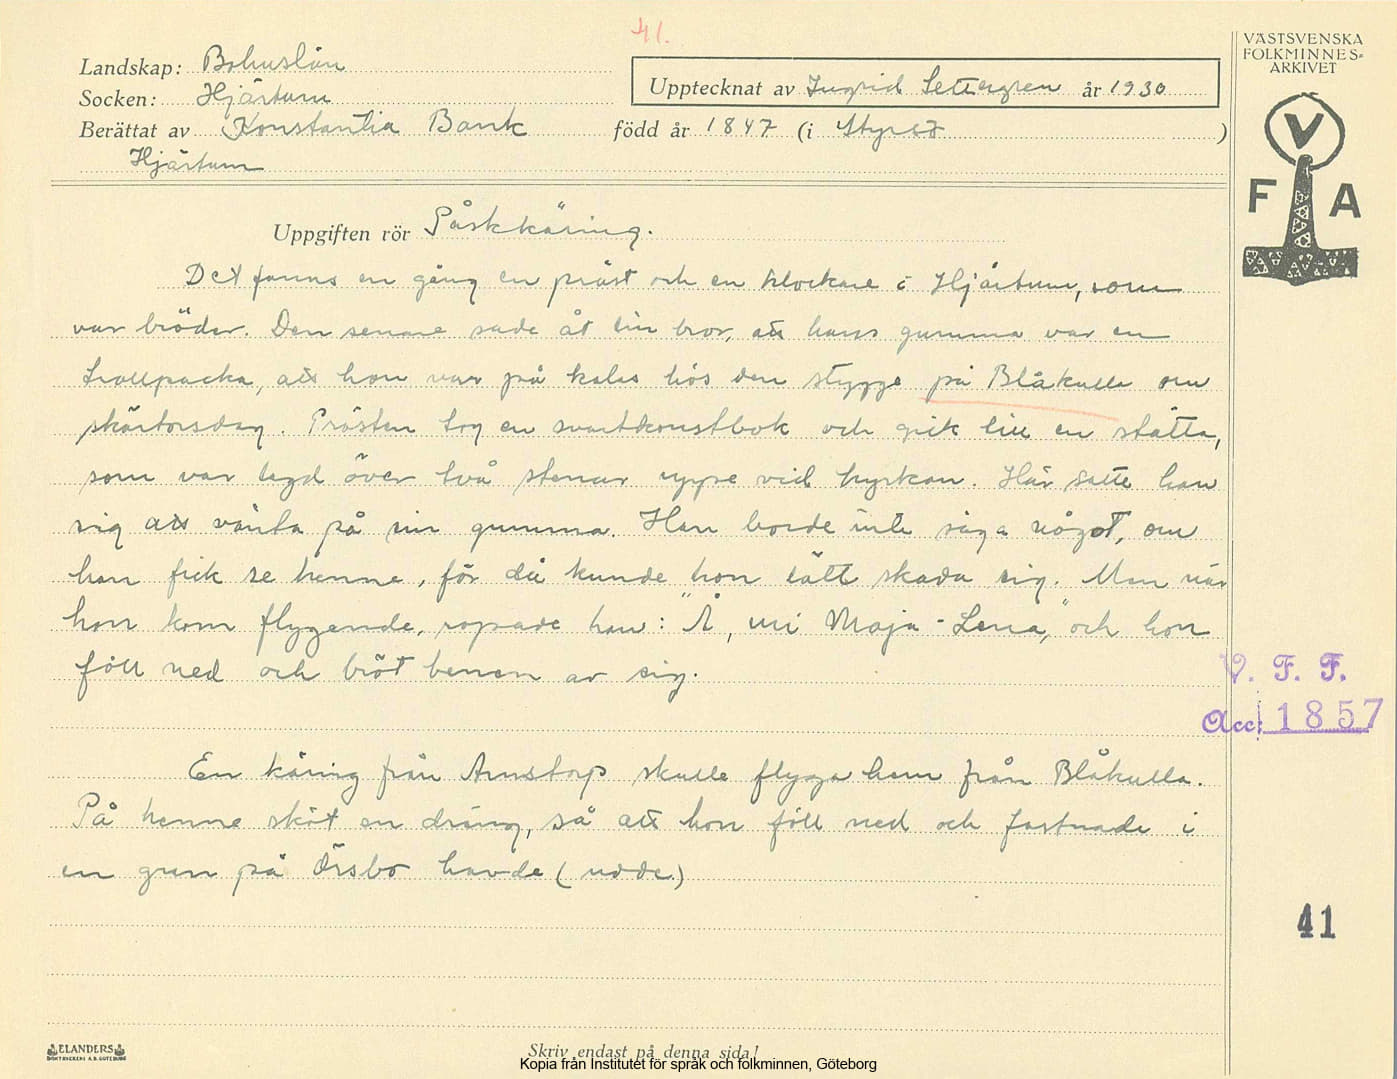 41.
VÄSTSVENSKA
FOLKMINNES-
ARKIVET
V
F A
Landskap: Bohuslän
Socken: Hjärtum
Upptecknat av Ingrid Settergren år 1930
Berättat av Konstantia Bank född år 1847 (i Styrsö )
Hjärtum
Uppgiften rör Påskkäring.
Det fanns en gång en präst och en klockare i Hjärtum, som
var bröder. Den senare sade åt sin bror, att hans gumma var en
trollpacka, att hon var på kalas hos den stygge på Blåkulla om
skärtorsdag. Prästen tog en svartkonstbok och gick till en stätta,
som var lagd över två stenar uppe vid kyrkan. Här satte han
sig att vänta på sin gumma. Han borde inte säga något, om
han fick se henne, för då kunde hon lätt skada sig. Men när
hon kom flygende, ropade han: "Å, mi Maja-Lena," och hon
föll ned och bröt benen av sig.
V. F. F.
Acc: 1857
En käring från Arnstorp skulle flyga hem från Blåkulla.
På henne sköt en dräng, så att hon föll ned och fastnade i
en gran på Örsbo havde (udde)
41
ELANDERS
BOKTRYCKERI A.B. GÖTEBORG
Skriv endast på denna sida!
Kopia från Institutet för språk och folkminnen, Göteborg